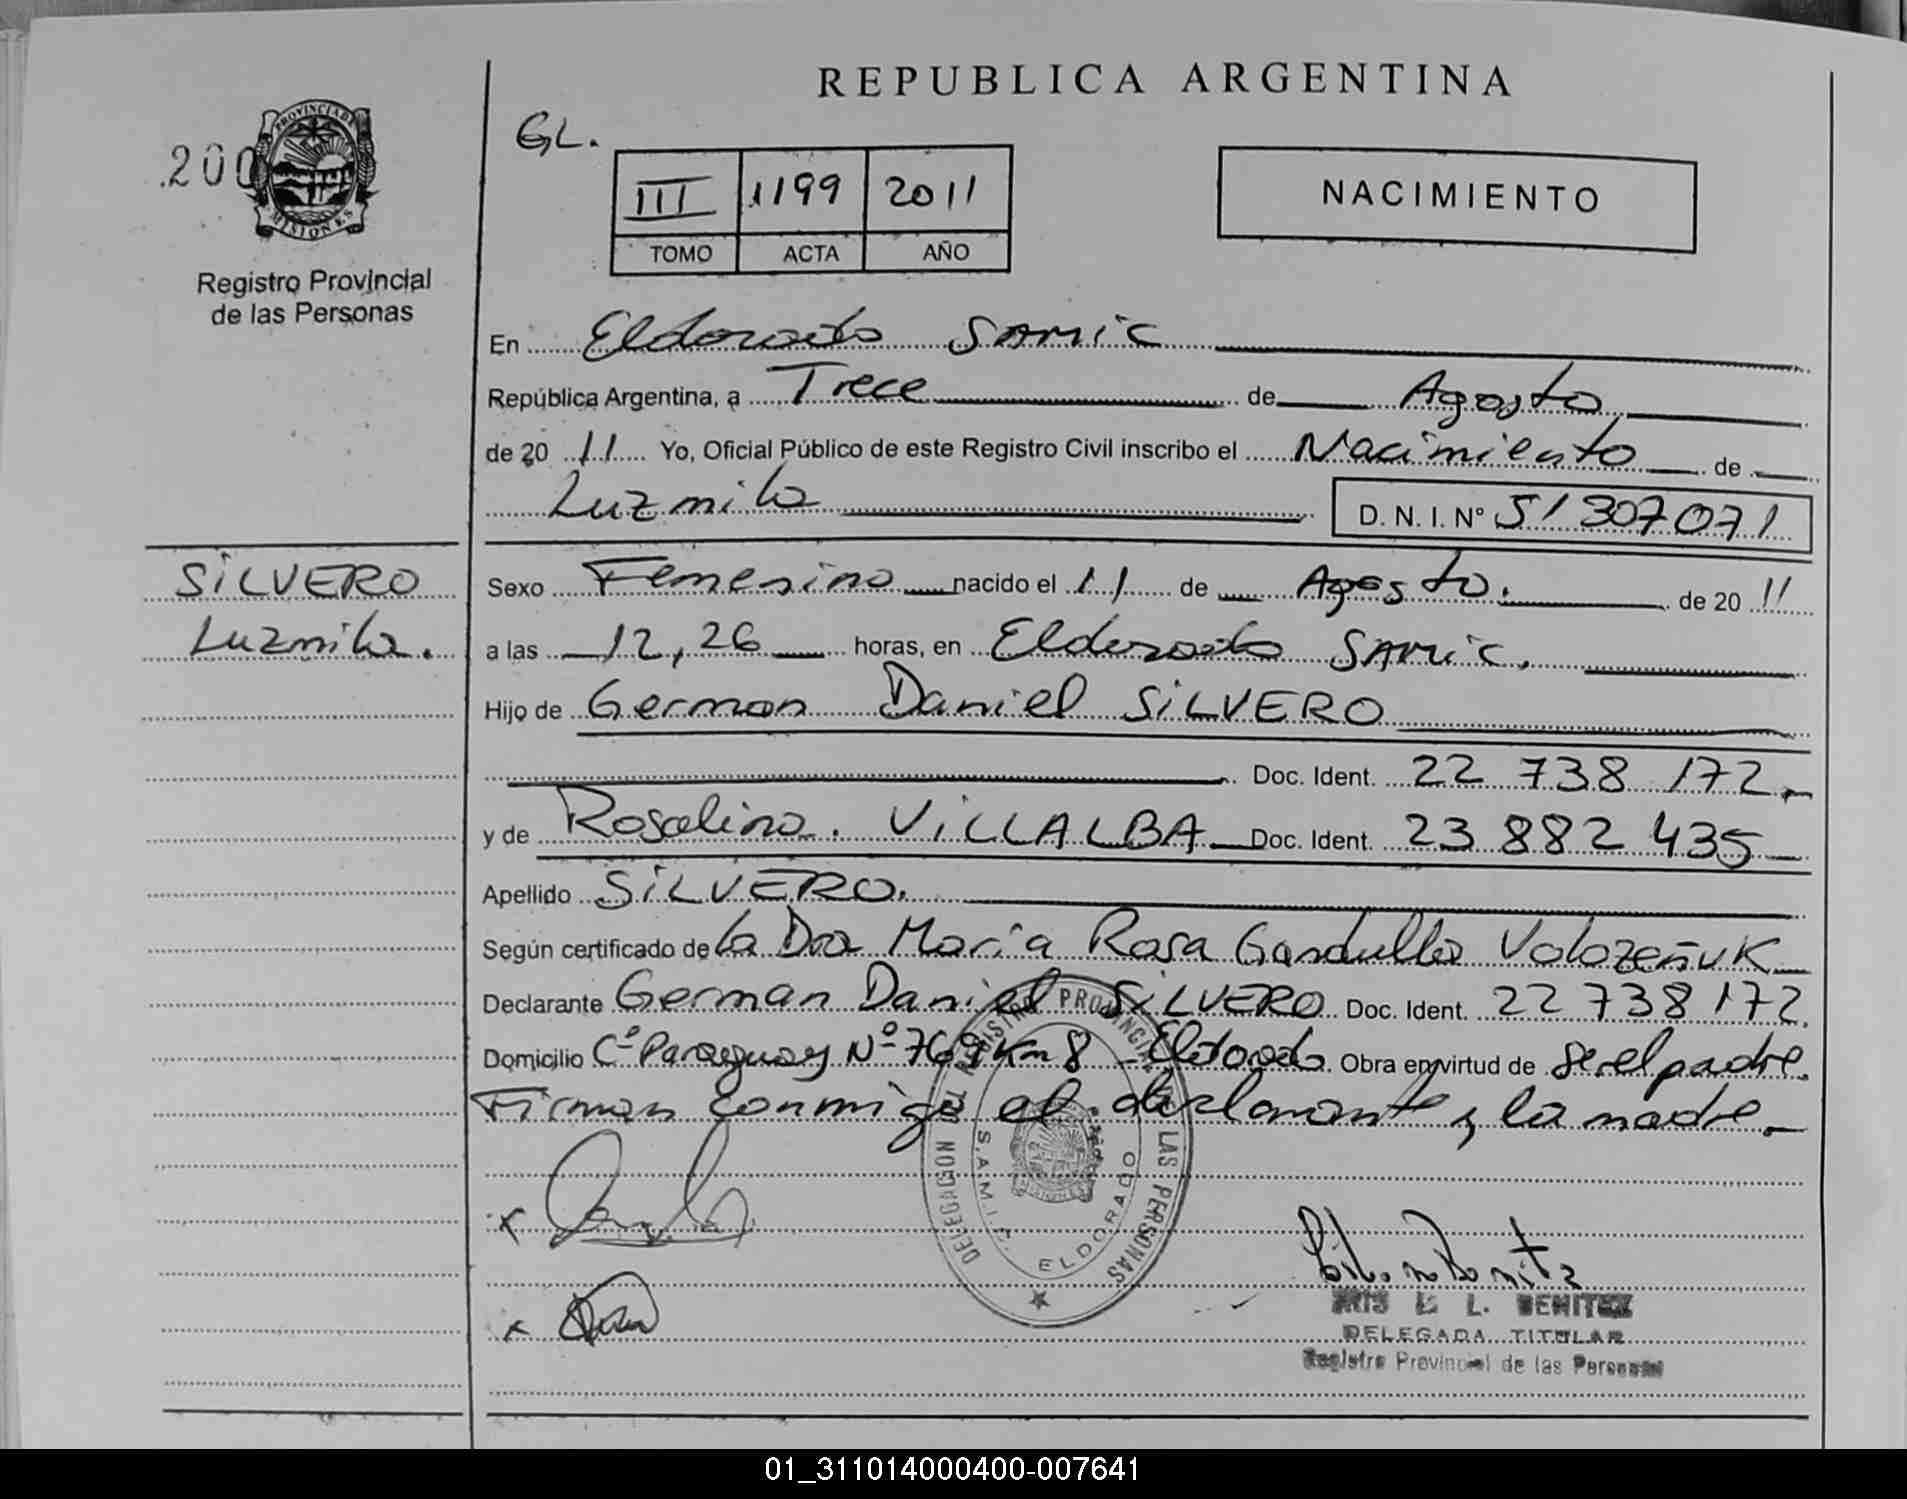 REPUBLICA ARGENTINA
200
PROVINCIA DE
MISIONES
Registro Provincial
de las Personas
GL.
III 1199 2011
TOMO ACTA AÑO
NACIMIENTO
En Eldorado SAMIC
República Argentina, a Trece de Agosto
de 20 11 Yo, Oficial Público de este Registro Civil inscribo el Nacimiento de
Luzmila D. N. I. N° 51 307 071
SILVERO
Luzmila.
Sexo Femenino nacido el 11 de Agosto. de 20 11
a las 12,26 horas, en Eldorado SAMIC.
Hijo de German Daniel SILVERO
Doc. Ident. 22 738 172
y de Rosalina. VILLALBA Doc. Ident. 23 882 435
Apellido SILVERO.
Según certificado de la Dra Maria Rosa Gandulla
Declarante German Daniel SILVERO Doc. Ident. 22 738 172.
Domicilio Cº Paraguay Nº 769 Km 8 Eldorado. Obra en virtud de ser el padre.
Firman conmigo el declarante y la madre.
DELEGACION DEL REGISTRO PROVINCIAL DE LAS PERSONAS
S.A.M.I.C. ELDORADO
x
x
L. BENITEZ
DELEGADA TITULAR
Registro Provincial de las Personas
01_311014000400-007641